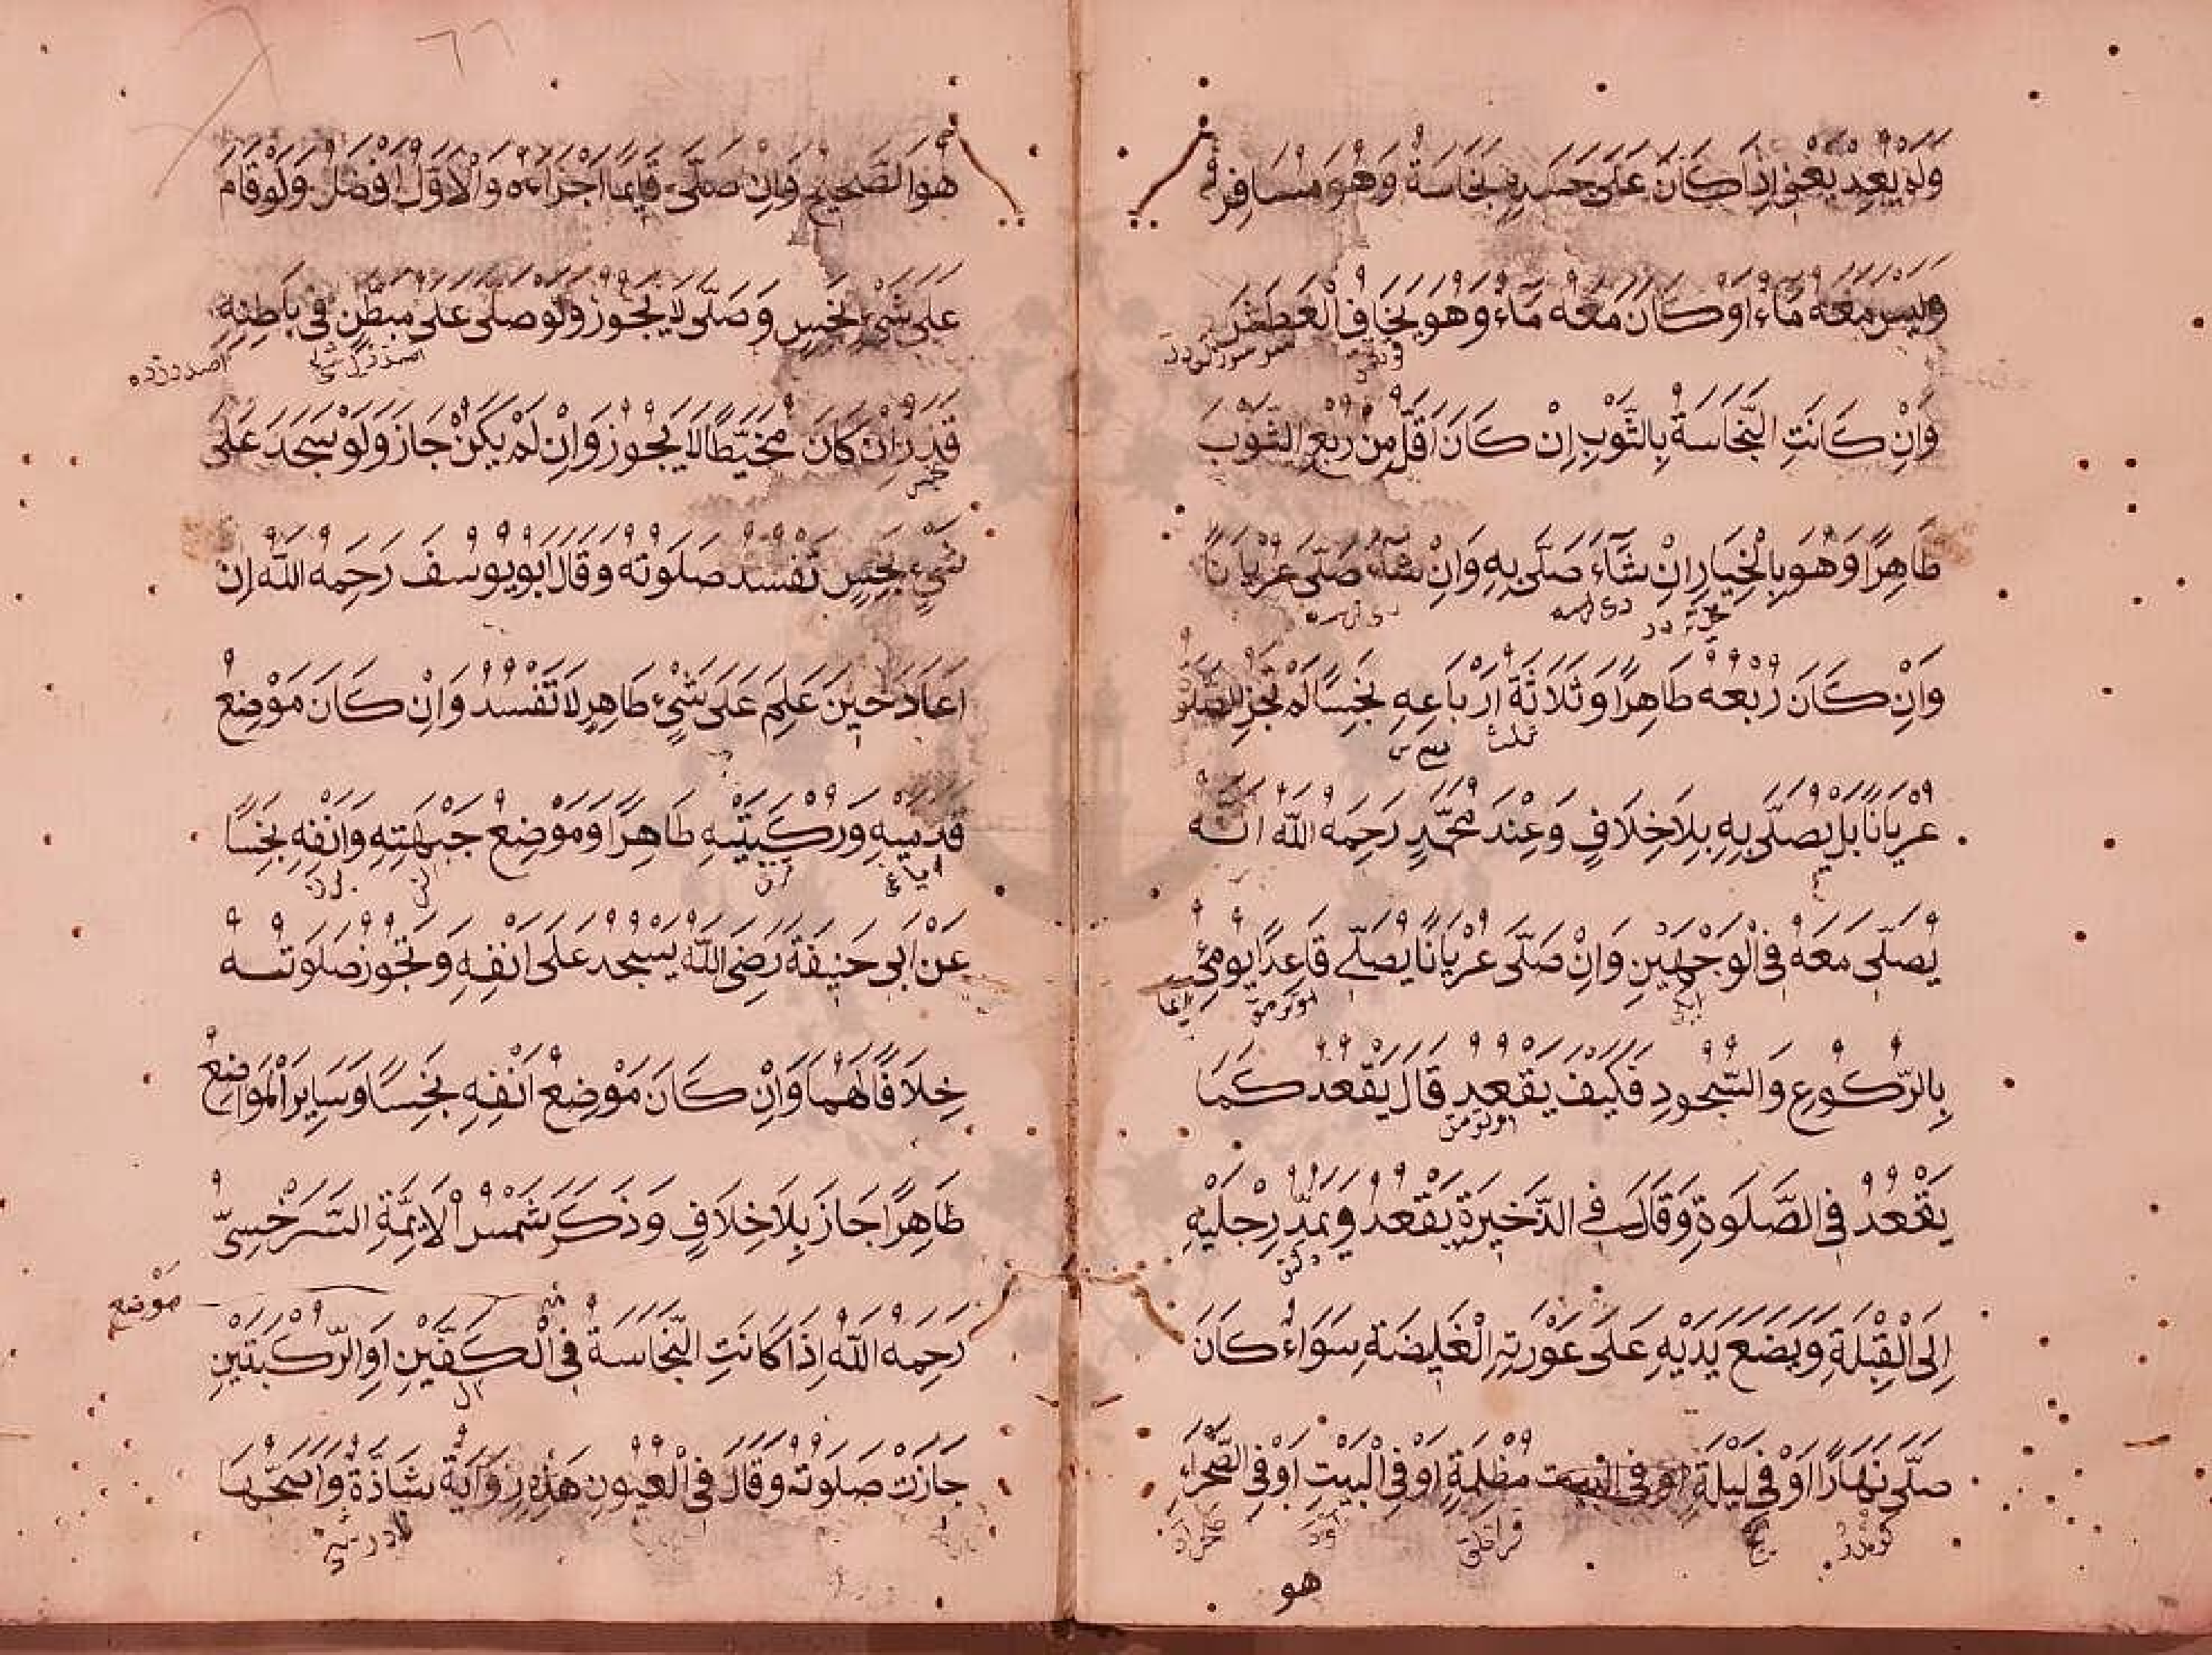 وَلَمْ يُعِدْ يَعْنِي إِذَا كَانَ عَلَى جَسَدِهِ نَجَاسَةٌ وَهُوَ مُسَافِرٌ
وَلَيْسَ مَعَهُ مَاءٌ أَوْ كَانَ مَعَهُ مَاءٌ وَهُوَ يَخَافُ الْعَطَشَ
وَإِنْ كَانَتِ النَّجَاسَةُ بِالثَّوْبِ إِنْ كَانَ أَقَلَّ مِنْ رُبْعِ الثَّوْبِ
طَاهِرًا وَهُوَ بِالْخِيَارِ إِنْ شَآءَ صَلَّى بِهِ وَإِنْ شَآءَ صَلَّى عُرْيَانًا
وَإِنْ كَانَ رُبْعُهُ طَاهِرًا وَثَلَاثَةُ أَرْبَاعِهِ نَجِسًا لَمْ تَجُزِ الصلو
عُرْيَانًا بَلْ يُصَلِّي بِهِ بِلَا خِلَافٍ وَعِنْدَ مُحَمَّدٍ رَحِمَهُ اللّٰهُ انه
يُصَلِّي مَعَهُ فِي الْوَجْهَيْنِ وَإِنْ صَلَّى عُرْيَانًا يُصَلِّي قَاعِدًا يُومِئُ
بِالرُّكُوعِ وَالسُّجُودِ فَكَيْفَ يَقْعُدُ قَالَ يَقْعُدُ كَمَا
يَقْعُدُ فِي الصَّلَوةِ وَقَالَ فِي الذَّخِيرَةِ يَقْعُدُ وَيَمُدُّ رِجْلَيْهِ
إِلَى الْقِبْلَةِ وَيَضَعُ يَدَيْهِ عَلَى عَوْرَتِهِ الْغَلِيضَةِ سَوَاءٌ كَانَ
صَلَّى نَهَارًا أَوْ فِي لَيْلَةٍ مُظْلِمَةٍ أَوْ فِي الْبَيْتِ أَوْ فِي الصَّحْرَاءِ
هو
٦٦
هُوَ الصَّحِيحُ وَإِنْ صَلَّى قَائِمًا أَجْزَاءَهُ وَالْأَوَّلُ أَفْضَلُ وَلَوْ قَامَ
عَلَى شَيْءٍ نَجِسٍ وَصَلَّى لَا يَجُوزُ وَلَوْ صَلَّى عَلَى مُبَطَّنٍ فِي بَاطِنِهِ
قَذَرٌ إِنْ كَانَ مُخَيَّطًا لَا يَجُوزُ وَإِنْ لَمْ يَكُنْ جَازَ وَلَوْ سَجَدَ عَلَى
شَيْءٍ نَجِسٍ تَفْسُدُ صَلَوتُهُ وَقَالَ أَبُو يُوسُفَ رَحِمَهُ اللّٰهُ إِنْ
أَعَادَ حِينَ عَلِمَ عَلَى شَيْءٍ طَاهِرٍ لَا تَفْسُدُ وَإِنْ كَانَ مَوْضِعُ
قَدَمَيْهِ وَرُكْبَتَيْهِ طَاهِرًا وَمَوْضِعُ جَبْهَتِهِ وَأَنْفِهِ نَجِسًا
عَنْ أَبِي حَنِيفَةَ رَضِيَ اللّٰهُ يَسْجُدُ عَلَى أَنْفِهِ وَتَجُوزُ صَلَوتُهُ
خِلَافًا لَهُمَا وَإِنْ كَانَ مَوْضِعُ أَنْفِهِ نَجِسًا وَسَايِرُ الْمَوَاضِعُ
طَاهِرًا جَازَ بِلَا خِلَافٍ وَذَكَرَ شَمْسُ الْأَيِمَّةِ السَّرَخْسِيُّ
رَحِمَهُ اللّٰهُ إِذَا كَانَتِ النَّجَاسَةُ فِي الْكَفَّيْنِ أَوِ الرُّكْبَتَيْنِ
مَوْضع
جَازَتْ صَلَوتُهُ وَقَالَ فِي الْعُيُونِ هَذِهِ رِوَايَةٌ شَاذَّةٌ وَأَصَحُّهَا